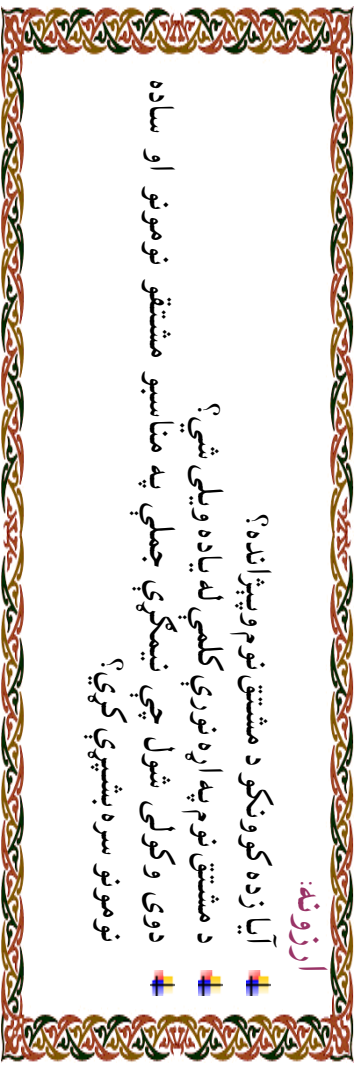 ارزونه:
آیا زده کوونکو د مشتق نوم وپېژانده؟
د مشتق نوم په اړه نورې کلمې له یاده ویلی شي؟
دوی وکولی شول چې نیمګړې جملې په مناسبو مشتقو نومونو او ساده
نومونو سره بشپړې کړي؟